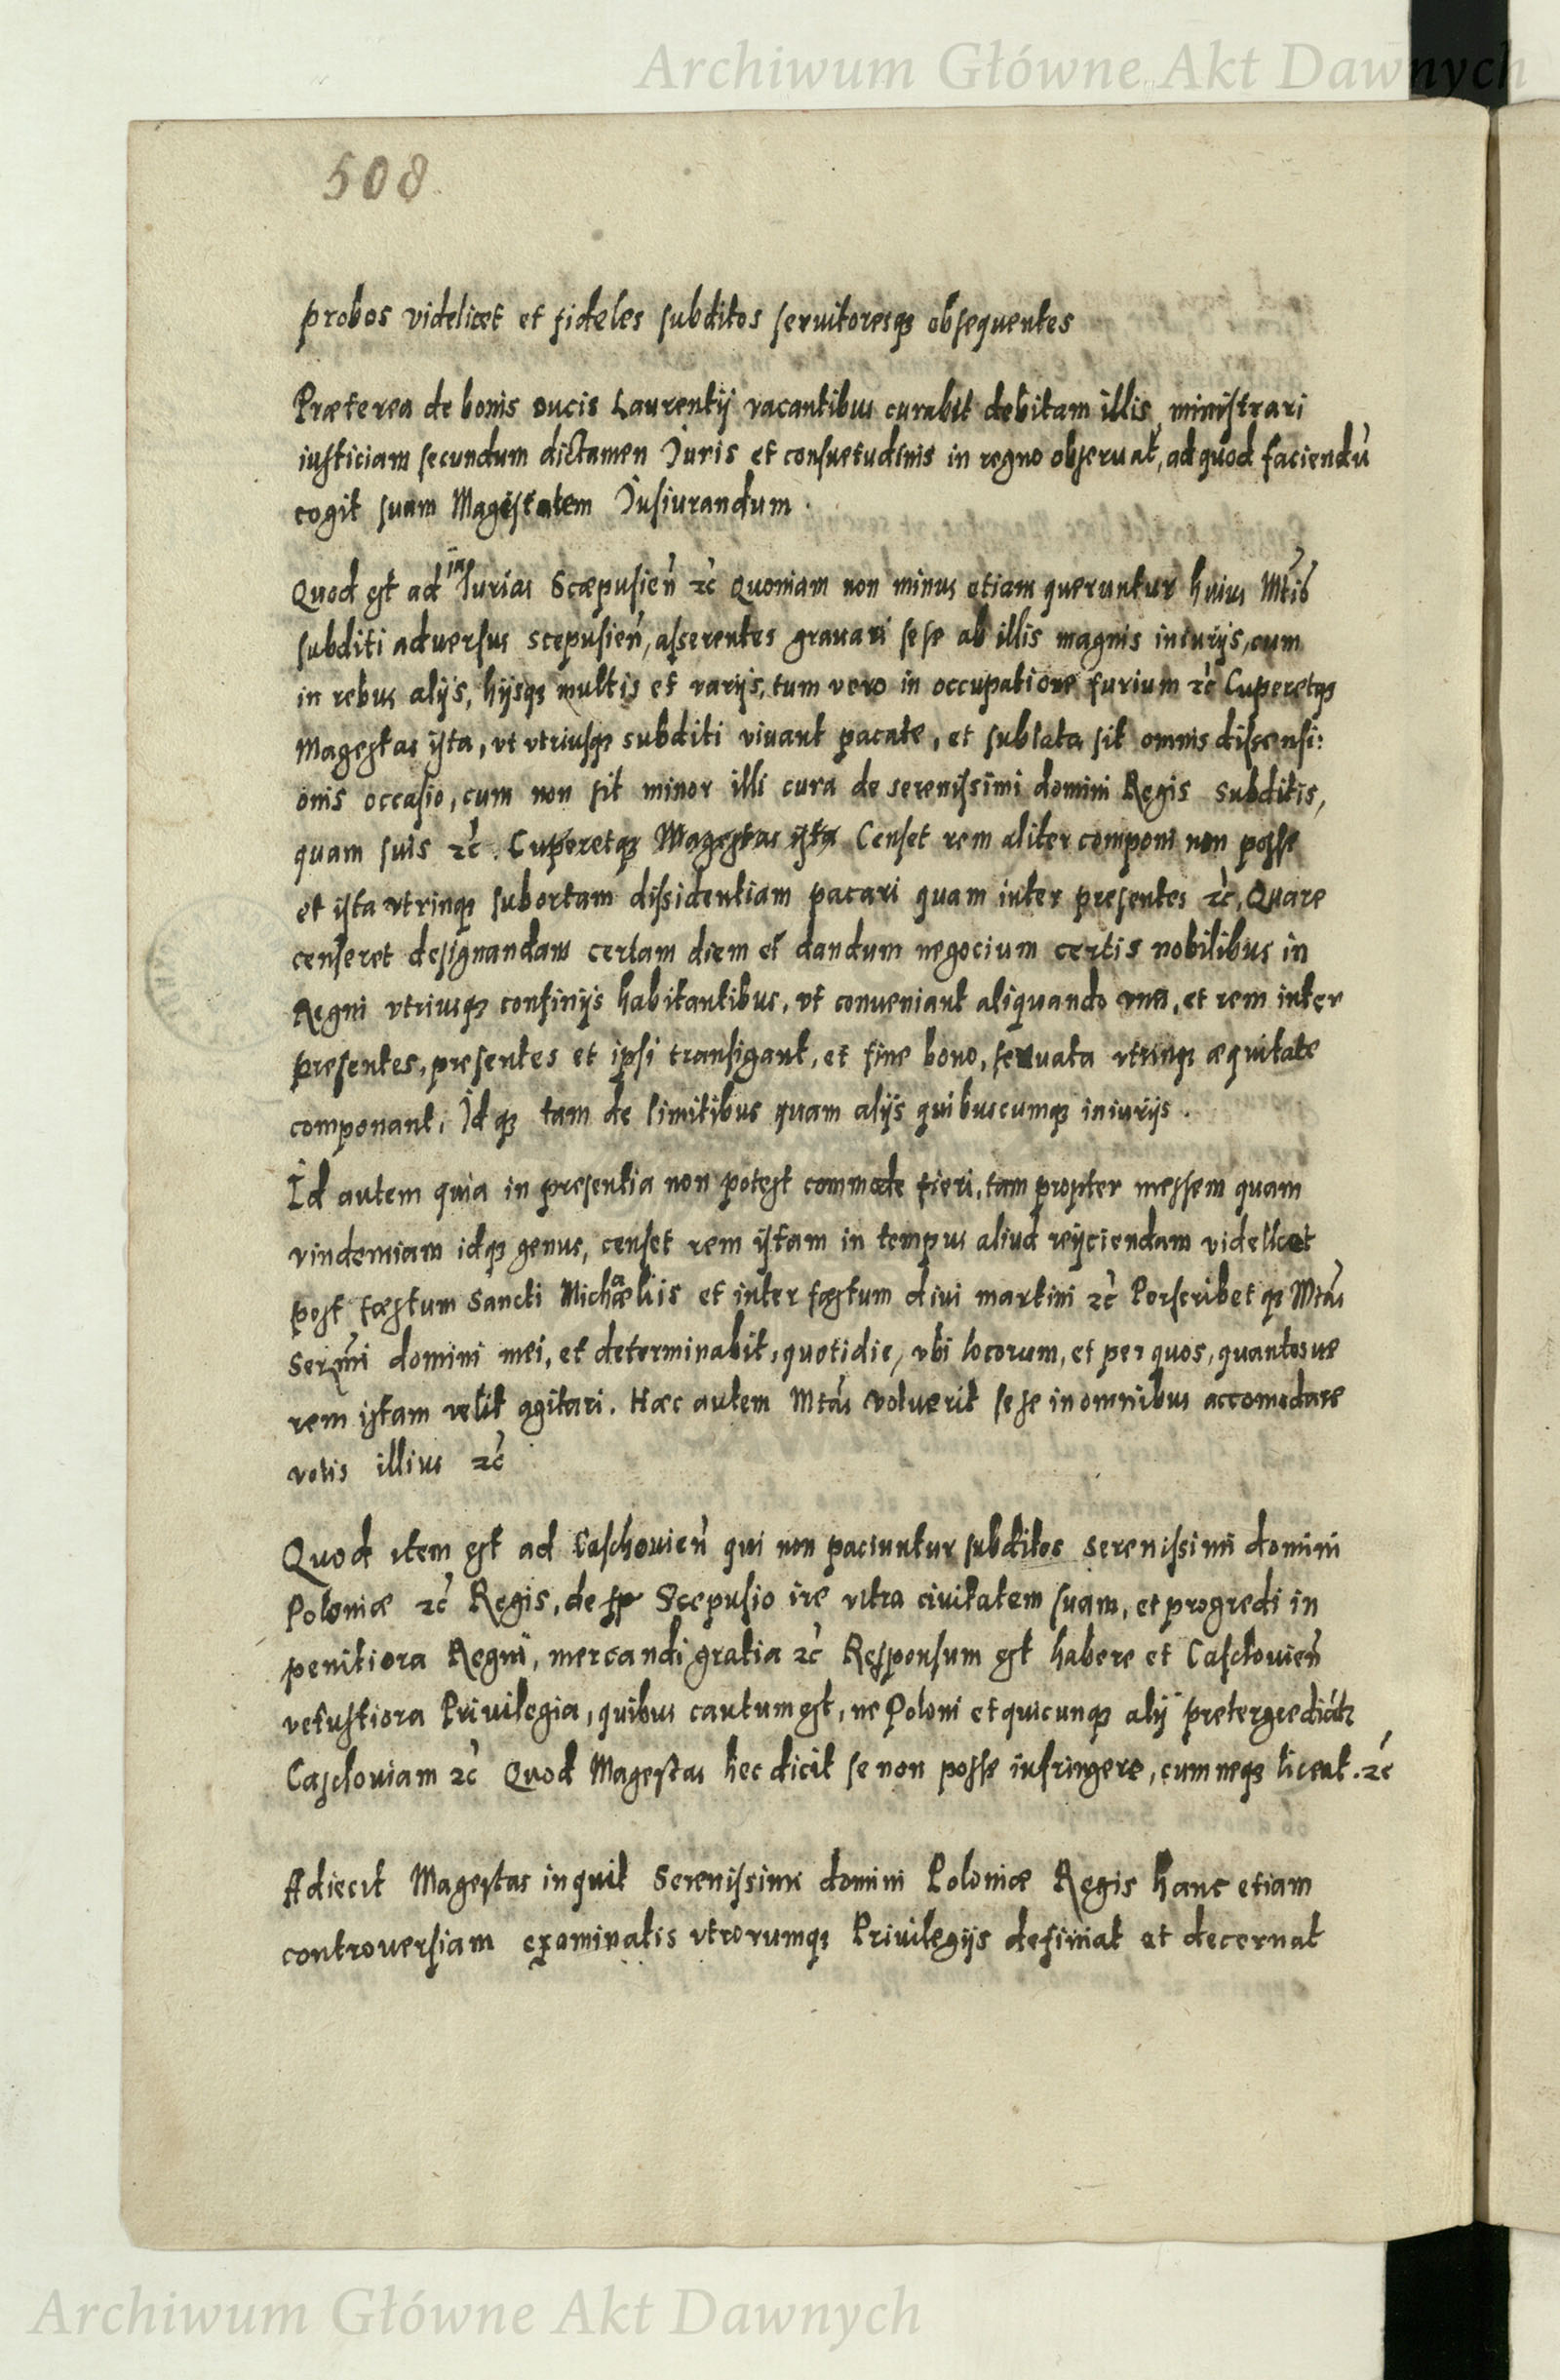 Archiwum Główne Akt Dawnych
508
probos videlicet et fideles subditos seruitoresq3 obsequentes
Præterea de bonis ducis Laurentij vacantibus curabit debitam illis, ministrari
iusticiam secundum dictamen Juris et consuetudinis in regno obseruat, ad quod faciendū
cogit suam Magestatem Jusiurandum.
Quod est ad inJurias Scæpusien̄ 2c̄ Quoniam non minus etiam queruntur huius Mtis
subditi aduersus scepusien̄, asserentes grauari sese ab illis magnis iniurijs, cum
in rebus alijs, hijsq3 multis et varijs, tum vero in occupatione furium 2c̄ Cuperetq3
Magestas ista, vt vtriusq3 subditi viuant pacate, et sublata sit omnis dissensi:
onis occasio, cum non sit minor illi cura de serenissimi domini Regis subditis,
quam suis 2c̄. Cuperetq3 Magestas ista Censet rem aliter componi non posse
et ista vtrinq3 subortam dissidentiam pacari quam inter presentes 2c̄. Quare
censeret designandam certam diem et dandum negocium certis nobilibus in
Regni vtriusq3 confinijs habitantibus, vt conueniant aliquando vna, et rem inter
presentes, presentes et ipsi transigant, et fine bono, seruata vtrinq3 æquitate
componant, Idq3 tam de limitibus quam alijs quibuscumq3 iniurijs.
Id autem quia in presentia non potest commode fieri, tam propter messem quam
vindemiam idq3 genus, censet rem istam in tempus aliud reijciendam videlicet
post fæstum Sancti Michaælis et inter fæstum diui martini 2c̄ Perscribetq3 Mtas
Serm̄i domini mei, et determinabit, quotidie, vbi locorum, et per quos, quantosue
rem istam velit agitari. Hæc autem Mtas voluerit sese in omnibus accomodare
votis illius 2c̄
Quod item est ad Caschouien̄ qui non paciuntur subditos serenissimi domini
Poloniæ 2c̄ Regis, de Scepusio ire vltra ciuitatem suam, et progredi in
penitiora Regni, mercandi gratia 2c̄ Responsum est habere et Caschouien̄
vetustiora Priuilegia, quibus cautum est, ne Poloni et quicunq3 alij pretergrediāt2
Caschouiam 2c̄ Quod Magestas hec dicit se non posse infringere, cum neq3 liceat. 2c̄
Adiecit Magestas inquit Serenissimi domini Poloniæ Regis hanc etiam
controuersiam examinatis vtrorumq3 Priuilegijs definiat et decernat
Archiwum Główne Akt Dawnych